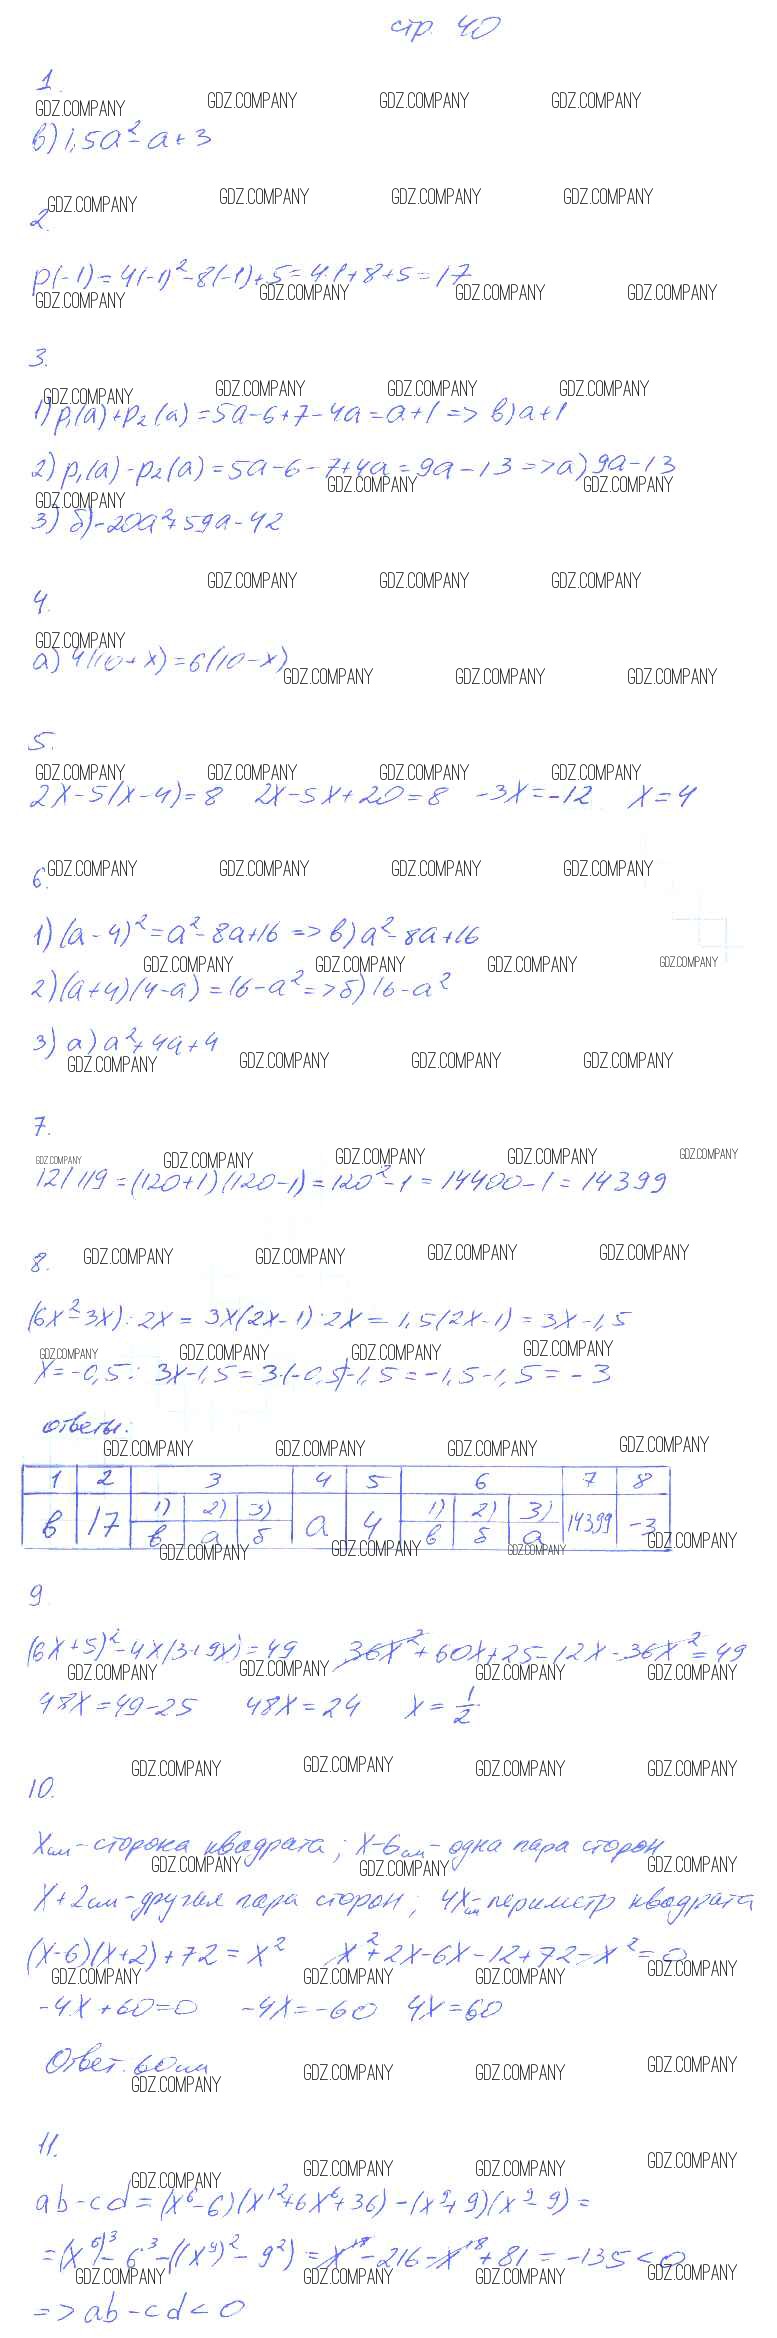 стр. 40
1.
GDZ.COMPANY GDZ.COMPANY GDZ.COMPANY GDZ.COMPANY
в) 1,5a²-a+3
GDZ.COMPANY GDZ.COMPANY GDZ.COMPANY GDZ.COMPANY
2.
p(-1)=4(-1)²-8(-1)+5=4·1+8+5=17
GDZ.COMPANY GDZ.COMPANY GDZ.COMPANY GDZ.COMPANY
3.
GDZ.COMPANY GDZ.COMPANY GDZ.COMPANY GDZ.COMPANY
1) p₁(a)+p₂(a)=5a-6+7-4a=a+1=> в) a+1
2) p₁(a)-p₂(a)=5a-6-7+4a=9a-13=> а) 9a-13
GDZ.COMPANY GDZ.COMPANY GDZ.COMPANY
3) б) -20a²+59a-42
GDZ.COMPANY GDZ.COMPANY GDZ.COMPANY
4.
GDZ.COMPANY
а) 4(10+x)=6(10-x)
GDZ.COMPANY GDZ.COMPANY GDZ.COMPANY
5.
GDZ.COMPANY GDZ.COMPANY GDZ.COMPANY GDZ.COMPANY
2x-5(x-4)=8 2x-5x+20=8 -3x=-12 x=4
6. GDZ.COMPANY GDZ.COMPANY GDZ.COMPANY GDZ.COMPANY
1) (a-4)²=a²-8a+16 => в) a²-8a+16
GDZ.COMPANY GDZ.COMPANY GDZ.COMPANY GDZ.COMPANY
2) (a+4)(4-a)=16-a²=> б) 16-a²
3) а) a²+4a+4
GDZ.COMPANY GDZ.COMPANY GDZ.COMPANY GDZ.COMPANY
7.
GDZ.COMPANY GDZ.COMPANY GDZ.COMPANY GDZ.COMPANY GDZ.COMPANY
121·119=(120+1)(120-1)=120²-1=14400-1=14399
8. GDZ.COMPANY GDZ.COMPANY GDZ.COMPANY GDZ.COMPANY
(6x²-3x):2x=3x(2x-1):2x=1,5(2x-1)=3x-1,5
GDZ.COMPANY GDZ.COMPANY GDZ.COMPANY GDZ.COMPANY
x=-0,5: 3x-1,5=3·(-0,5)-1,5=-1,5-1,5=-3
ответы:
GDZ.COMPANY GDZ.COMPANY GDZ.COMPANY GDZ.COMPANY
1 2 3 4 5 6 7 8
1) 2) 3) 1) 2) 3)
в 17 в а б а 4 в б а 14399 -3
GDZ.COMPANY GDZ.COMPANY GDZ.COMPANY GDZ.COMPANY
9.
(6x+5)²-4x(3+9x)=49 36x²+60x+25-12x-36x²=49
GDZ.COMPANY GDZ.COMPANY GDZ.COMPANY GDZ.COMPANY
48x=49-25 48x=24 x=1/2
GDZ.COMPANY GDZ.COMPANY GDZ.COMPANY GDZ.COMPANY
10.
x см - сторона квадрата; x-6 см - одна пара сторон
GDZ.COMPANY GDZ.COMPANY GDZ.COMPANY
x+2 см - другая пара сторон; 4x см - периметр квадрата
(x-6)(x+2)+72=x² x²+2x-6x-12+72-x²=0
GDZ.COMPANY GDZ.COMPANY GDZ.COMPANY GDZ.COMPANY
-4x+60=0 -4x=-60 4x=60
Ответ: 60 см
GDZ.COMPANY GDZ.COMPANY GDZ.COMPANY GDZ.COMPANY
11.
GDZ.COMPANY GDZ.COMPANY GDZ.COMPANY GDZ.COMPANY
ab-cd=(x⁶-6)(x¹²+6x⁶+36)-(x⁹+9)(x⁹-9)=
=(x⁶)³-6³-((x⁹)²-9²)=x¹⁸-216-x¹⁸+81=-135<0
GDZ.COMPANY GDZ.COMPANY GDZ.COMPANY GDZ.COMPANY
=>ab-cd<0